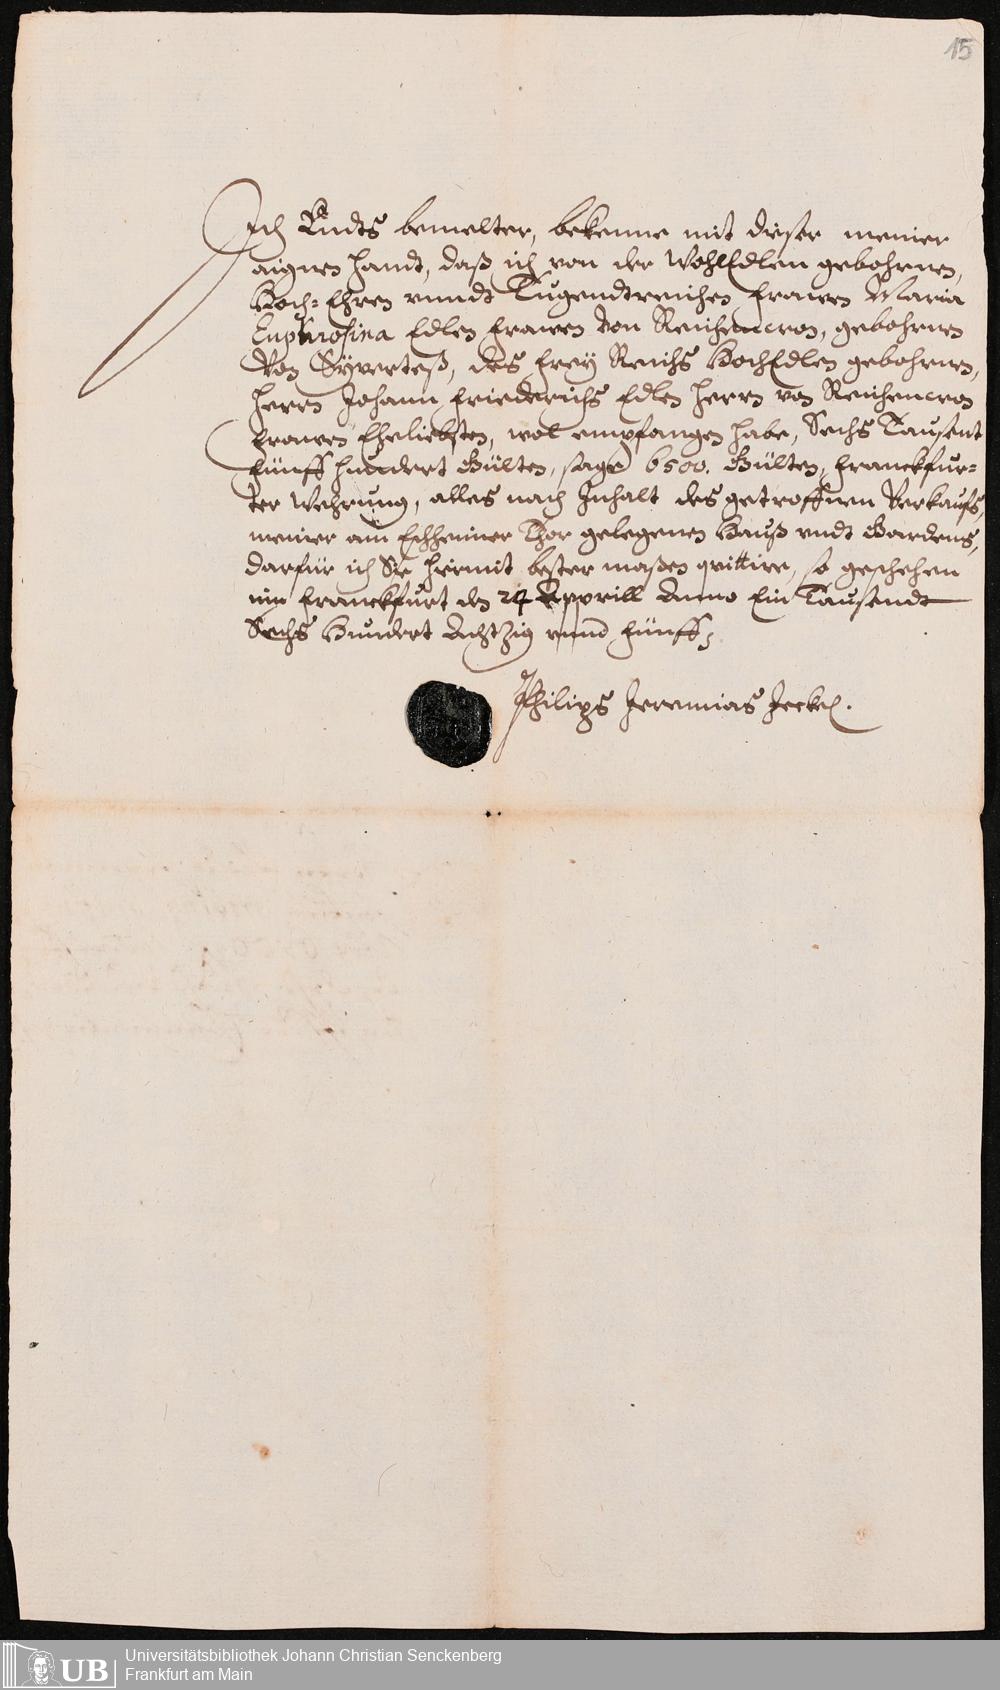 15
Ich Endts bemelter, bekenne mit dieser meiner
aignen Handt, daß ich von der WohlEdlen gebohrnen,
Hoch-Ehren vnndt Tugendtreichen Frawen Maria
Euphrosina Edlen Frawen von Reiheneron, gebohrnen
Von Syverteß, des Frey Reichs HochEdlen gebohrnen,
Herrn Johann Friederichs Edlen Herrn von Reiheneron
Frawen Eheliebsten, wol empfangen habe, Sechs Tausent
Fünff Hundert Gülten, sage 6500. Gülten, Franckfur-
ter Wehrung, alles nach Inhalt des getroffnen Verkaufs,
meiner am Eschheimer Thor gelegenen Hauß vndt Gardens,
darfür ich Sie hiermit bester maßen qvittire, so geschehen
inn Franckfurt den 24 Apprill Anno Ein Tausendt
Sechs Hundert Achtzig vnnd Fünff,
Philips Jeremias Jeckel.
UB
Universitätsbibliothek Johann Christian Senckenberg
Frankfurt am Main